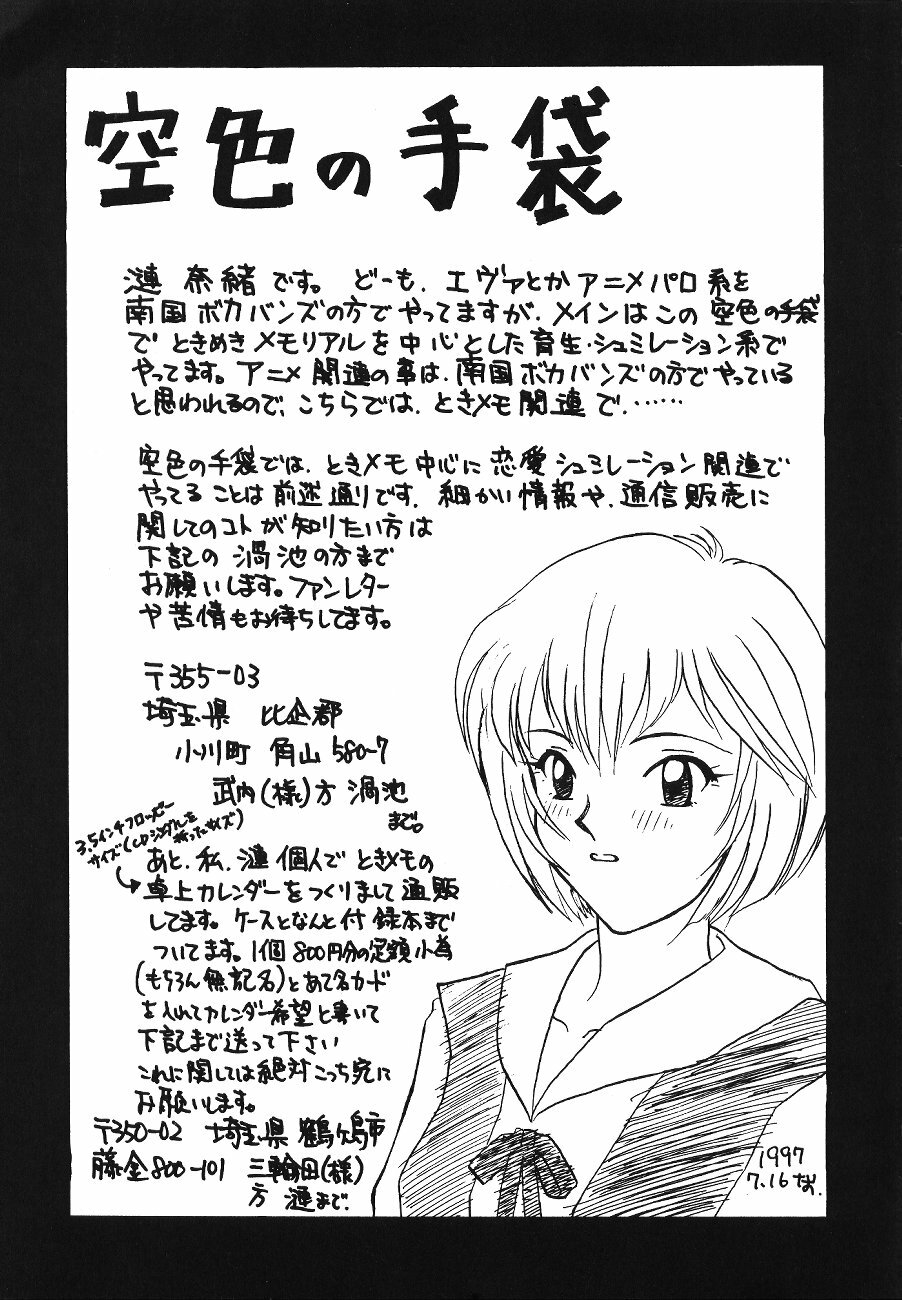 空色の手袋
漣 奈緒です。 どーも、エヴァとかアニメパロ系を
南国ボカバンズの方でやってますが、メインはこの空色の手袋
でときめきメモリアルを中心とした育生・シュミレーション系で
やってます。アニメ関連の事は、南国ボカバンズの方でやっている
と思われるので、こちらでは、ときメモ関連で、……
空色の手袋では、ときメモ中心に恋愛シュミレーション関連で
やってることは前述通りです。細かい情報や、通信販売に
関してのコトが知りたい方は
下記の渦池の方まで
お願いします。ファンレター
や苦情もお待ちしてます。
〒355-03
埼玉県 比企郡
小川町 角山580-7
武内(様)方 渦池
まで。
3.5インチフロッピー
サイズ(CDシングルを
折ったサイズ)
あと、私、漣個人でときメモの
卓上カレンダーをつくりまして通販
してます。ケースとなんと付録本まで
ついてます。1個800円分の定額小為
(もちろん無記名)とあて名カード
を入れてカレンダー希望と書いて
下記まで送って下さい
これに関しては絶対こっち宛に
お願いします。
〒350-02 埼玉県鶴ヶ島市
藤金800-101 三輪田(様)
方 漣まで。
1997
7.16 なお.